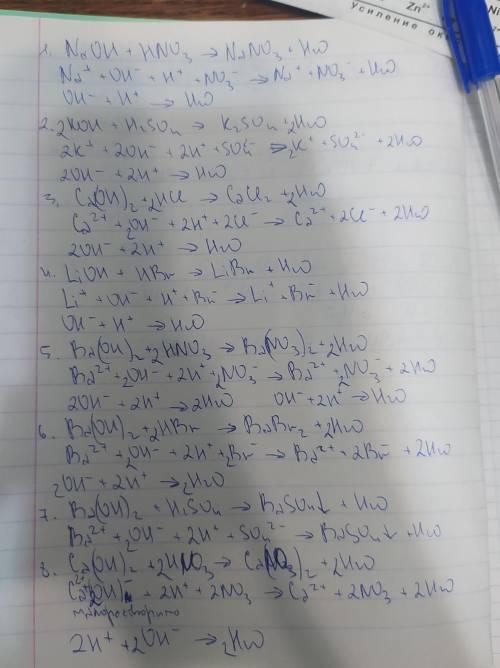 Zn²⁺
Ni
Усиление ок
1. NaOH + HNO₃ → NaNO₃ + H₂O
Na⁺ + OH⁻ + H⁺ + NO₃⁻ → Na⁺ + NO₃⁻ + H₂O
OH⁻ + H⁺ → H₂O
2. 2KOH + H₂SO₄ → K₂SO₄ + 2H₂O
2K⁺ + 2OH⁻ + 2H⁺ + SO₄²⁻ → 2K⁺ + SO₄²⁻ + 2H₂O
2OH⁻ + 2H⁺ → H₂O
3. Ca(OH)₂ + 2HCl → CaCl₂ + 2H₂O
Ca²⁺ + 2OH⁻ + 2H⁺ + 2Cl⁻ → Ca²⁺ + 2Cl⁻ + 2H₂O
2OH⁻ + 2H⁺ → H₂O
4. LiOH + HBr → LiBr + H₂O
Li⁺ + OH⁻ + H⁺ + Br⁻ → Li⁺ + Br⁻ + H₂O
OH⁻ + H⁺ → H₂O
5. Ba(OH)₂ + 2HNO₃ → Ba(NO₃)₂ + 2H₂O
Ba²⁺ + 2OH⁻ + 2H⁺ + 2NO₃⁻ → Ba²⁺ + 2NO₃⁻ + 2H₂O
2OH⁻ + 2H⁺ → 2H₂O OH⁻ + 2H⁺ → H₂O
6. Ba(OH)₂ + 2HBr → BaBr₂ + 2H₂O
Ba²⁺ + 2OH⁻ + 2H⁺ + 2Br⁻ → Ba²⁺ + 2Br⁻ + 2H₂O
2OH⁻ + 2H⁺ → 2H₂O
7. Ba(OH)₂ + H₂SO₄ → BaSO₄↓ + H₂O
Ba²⁺ + 2OH⁻ + 2H⁺ + SO₄²⁻ → BaSO₄↓ + H₂O
8. Ca(OH)₂ + 2HNO₃ → Ca(NO₃)₂ + 2H₂O
+ 2H⁺ + 2NO₃ → Ca²⁺ + 2NO₃ + 2H₂O
малорастворимо
2H⁺ + 2OH⁻ → 2H₂O